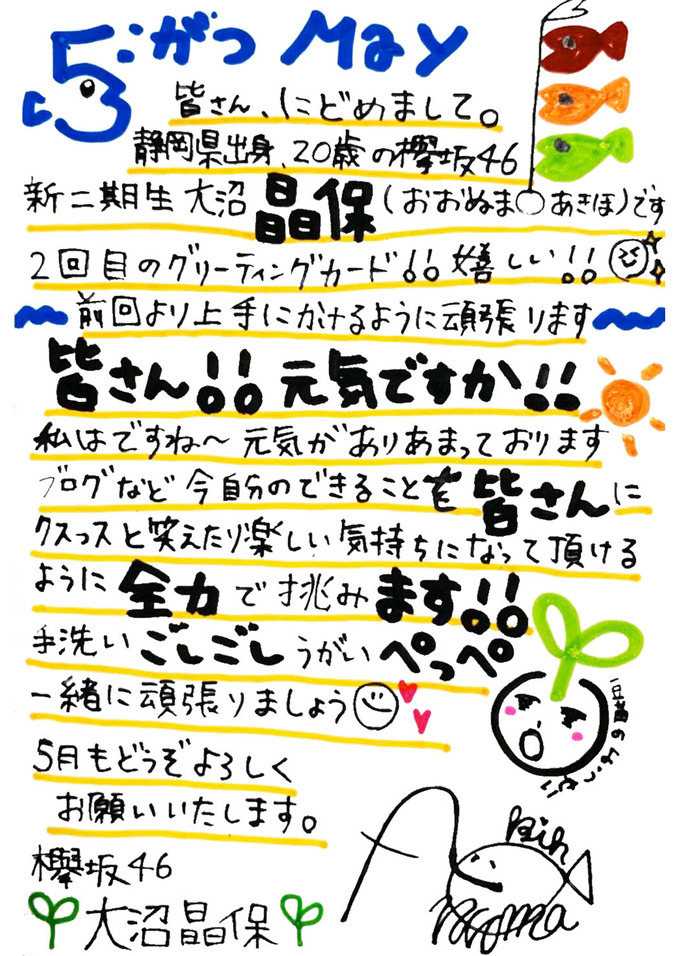 5がつ May
皆さん、にどめまして。
静岡県出身、20歳の欅坂46
新二期生 大沼 晶保(おおぬま○あきほ)です
2回目のグリーティングカード!! 嬉しい!!
前回より上手にかけるように頑張ります
皆さん!! 元気ですか!!
私はですね〜 元気がありあまっております
ブログなど今自分のできることを皆さんに
クスっスと笑えたり楽しい気持ちになって頂ける
ように全力で挑みます!!
手洗いごしごしうがいぺっぺ
一緒に頑張りましょう
5月もどうぞよろしく
お願いいたします。
欅坂46
大沼晶保